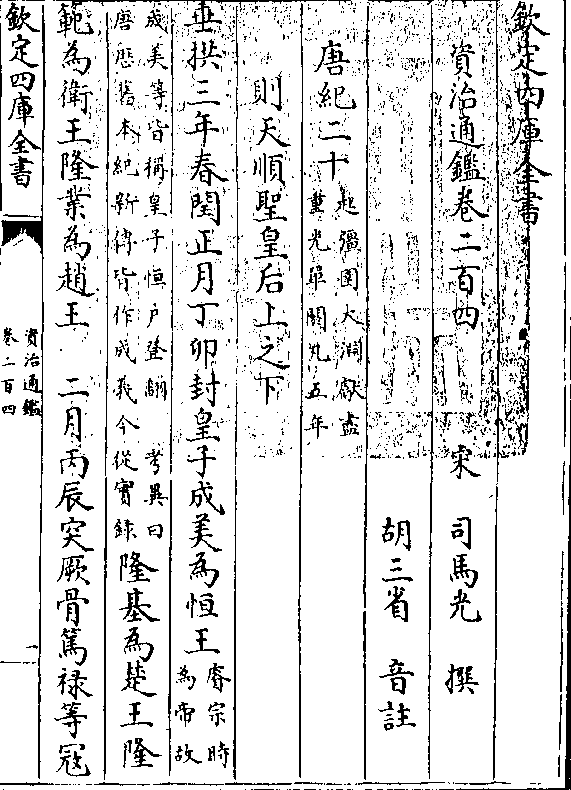 欽定四庫全書
資治通鑑卷二百四
宋 司馬光 撰
胡三省 音註
唐紀二十起彊圉大淵獻盡
重光單閼凡五年
則天順聖皇后上之下
垂拱三年春閏正月丁卯封皇子成美為恒王睿宗時
為帝故
成美等皆稱皇子恒戶登翻 考異曰
唐歴舊本紀新傳皆作成義今從實録隆基為楚王隆
範為衛王隆業為趙王 二月丙辰突厥骨篤禄等寇
欽定四庫全書
資治通鑑
卷二百四
一